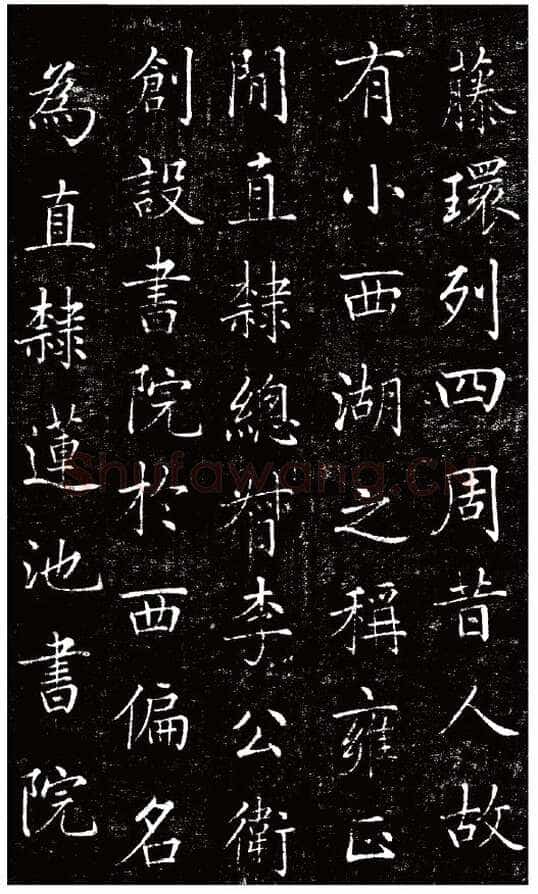 藤環列四周昔人故
有小西湖之稱雍正
間直隸總督李公衛
創設書院於西偏名
為直隸蓮池書院
Shufawang.Cn